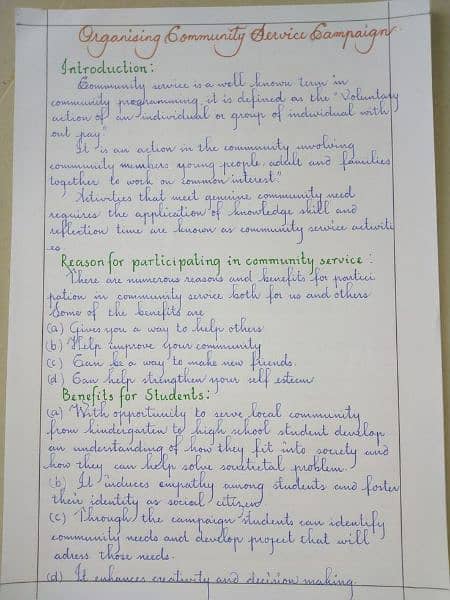 Organising Community Service Campaign
Introduction:
Community service is a well known term in
community programming it is defined as the "Voluntary
action of an individual or group of individual with
out pay"
It is an action in the community involving
community members young people, adult and families
together to work on common interest."
Activities that meet genuine community need
requires the application of knowledge skill and
reflection time are known as community service activiti
es.
Reason for participating in community service :
There are numerous reasons and benefits for partici
pation in community service both for us and others
Some of the benefits are
(a) Gives you a way to help others
(b) Help improve your community
(c) Can be a way to make new friends.
(d) Can help strengthen your self esteem
Benefits for Students:
(a) With opportunity to serve local community
from kindergarten to high school student develop
an understanding of how they fit into society and
how they can help solve societietal problem.
(b) It induces empathy among students and foster
their identity as social citizen
(c) Through the campaign students can identify
community needs and develop project that will
adress those needs.
(d) It enhances creativity and decision making.